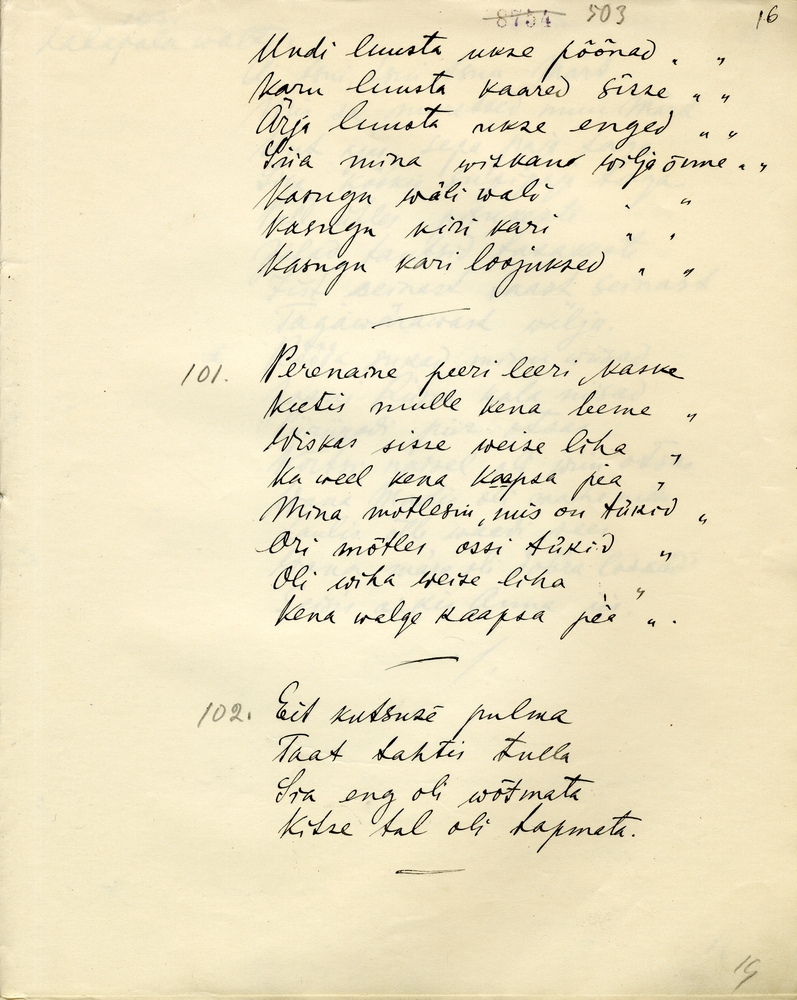 8754 503 16
Undi luusta ukse pöönad „ „
Karu luusta kaared sisse „ „
Ärja luusta ukse enged „ „
Siia mina wiskano wilja õnne „ „
Kasugu wäli wali „ „
Kasugu kiri kari „ „
Kasugu kari loojuksed „ „
101. Perenaine peeri leeri, kaske
Keetis mulle kena leeme „
Wiskas sisse weise liha „
Ka weel kena kaapsa pea „
Mina mõtlesin, mis on tükid „
Ori mõtles ossi tükid „
Oli wiha weise liha „
Kena walge kaapsa pea „.
102. Eit kutsuse pulma
Taat tahtis tulla
Sia eng oli wõtmata
Kitse tal oli tapmata.